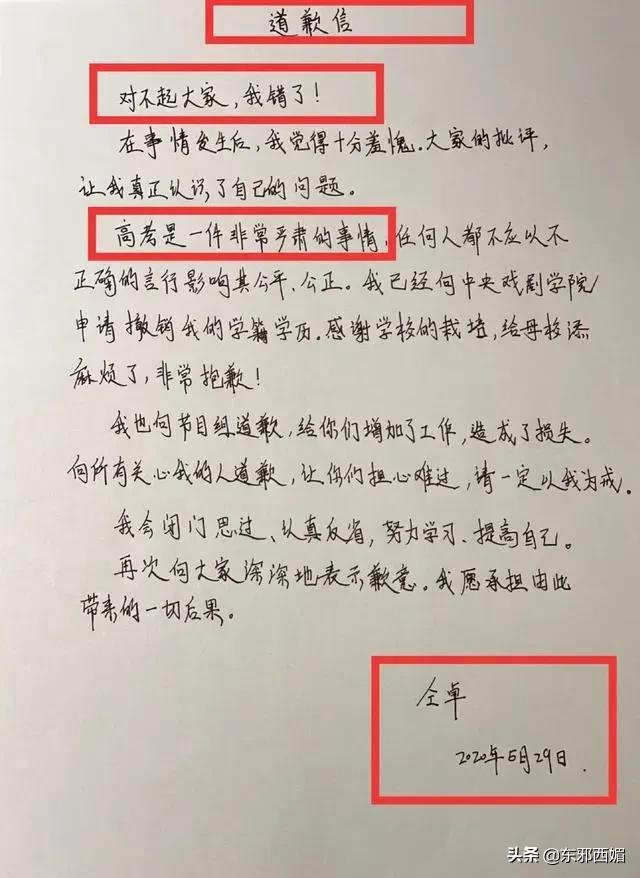 道歉信
对不起大家，我错了！
在事情发生后，我觉得十分羞愧。大家的批评，
让我真正认识了自己的问题。
高考是一件非常严肃的事情，任何人都不应以不
正确的言行影响其公平、公正。我已经向中央戏剧学院
申请撤销我的学籍学历。感谢学校的栽培，给母校添
麻烦了，非常抱歉！
我也向节目组道歉，给你们增加了工作，造成了损失。
向所有关心我的人道歉，让你们担心难过，请一定以我为戒。
我会闭门思过、认真反省，努力学习、提高自己。
再次向大家深深地表示歉意。我愿承担由此
带来的一切后果。
仝卓
2020年5月29日.
头条 @东邪西媚